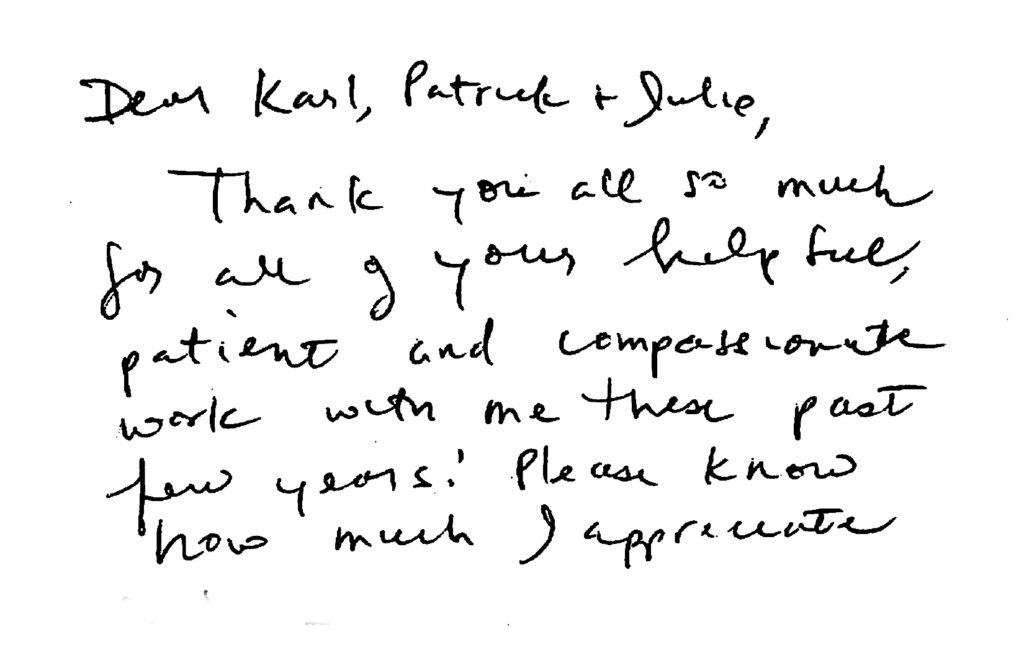 Dear Karl, Patrick + Julie,
Thank you all so much
for all of your helpful,
patient and compassionate
work with me these past
few years! Please know
how much I appreciate